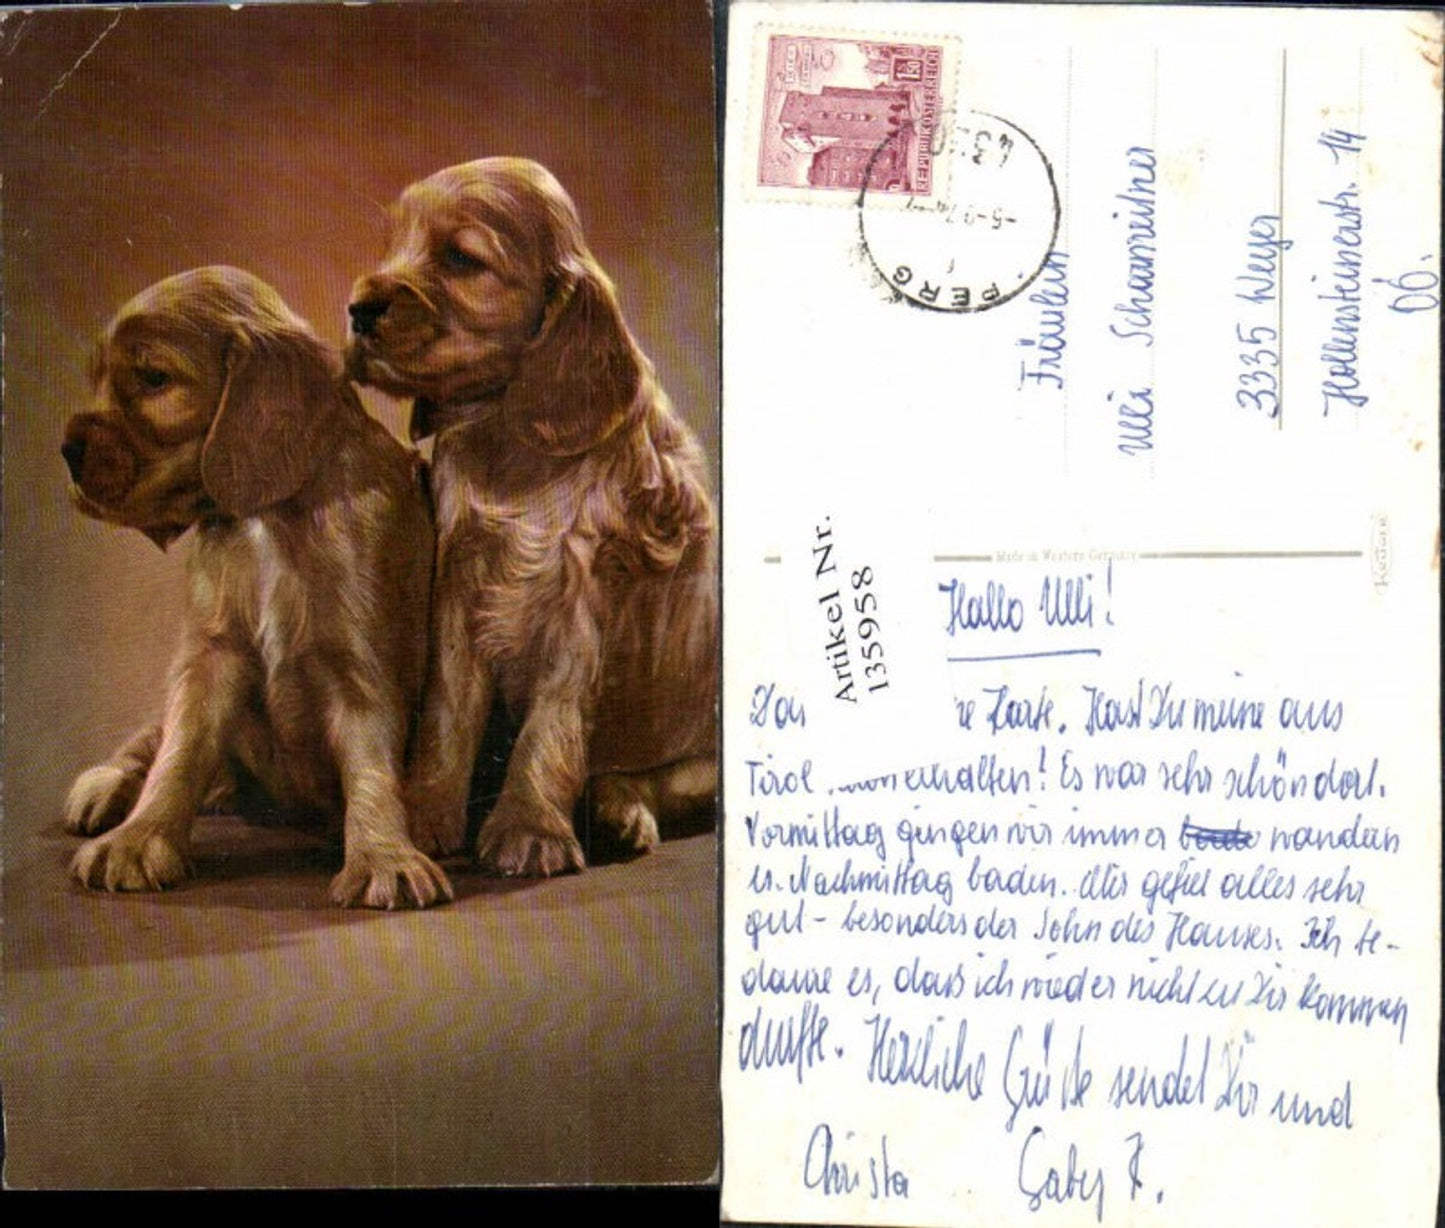 S 1.50
REPUBLIK ÖSTERREICH
PERG
Fräulein
Ulli Schameitner
3335 Weyer
Hollensteinerstr. 14
OÖ.
Made in Western Germany
Krüger
Artikel Nr.
135958
Hallo Ulli!
Karte. Hast Du meine aus
Tirol schon erhalten! Es war sehr schön dort.
Vormittag gingen wir immer wandern
u. Nachmittag baden. Mir gefiel alles sehr
gut - besonders der Sohn des Hauses. Ich be-
daure es, daß ich wieder nicht zu Dir kommen
durfte. Herzliche Grüße sendet Dir und
Christa Gaby F.